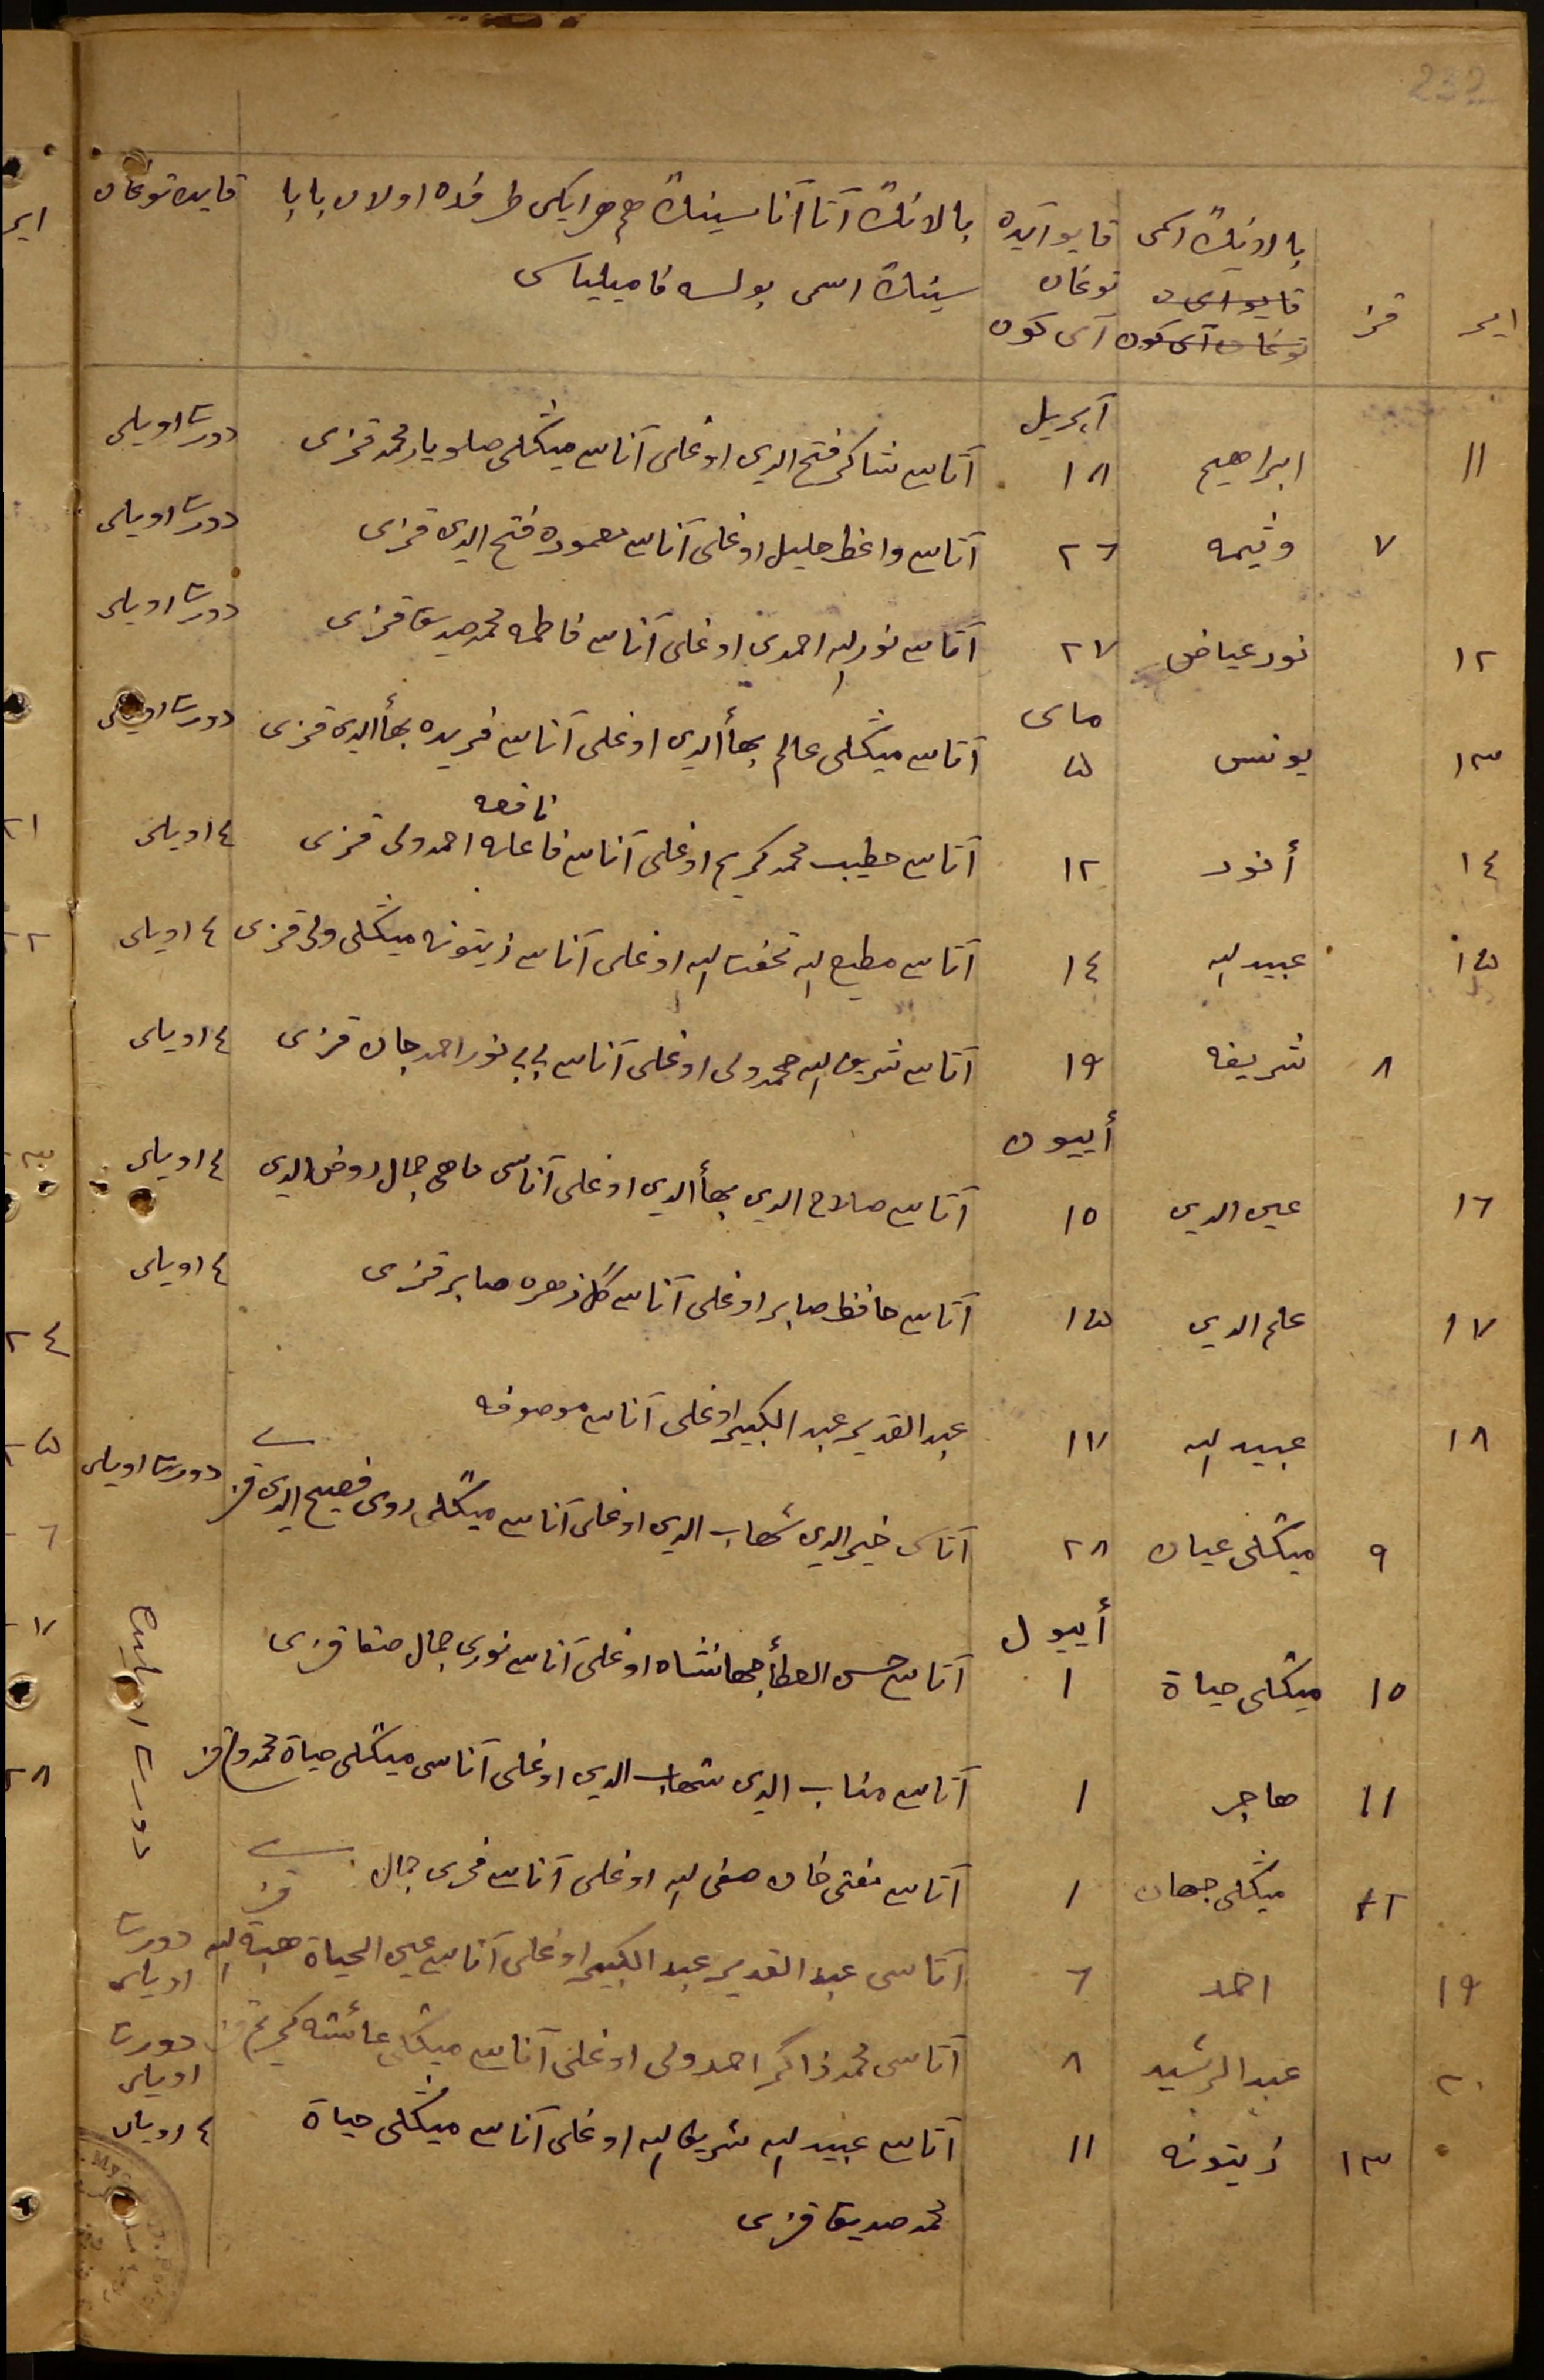 232
ایر
قز
بالانڭ اسمی
قایو آیده توغان آی کون
بالانڭ آتا آناسینڭ هم هر ایکی طرفده اولان بابا
سینڭ اسمی بولسه فامیلیاسی
قایده توغان
آپریل
١١ ابراهیم ١٨ آتاسی شاکر فتح الدین اوغلی آناسی میڭلی صلو یار محمد قزی دورت اویلی
٧ وثیمه ٢٦ آتاسی واعظ جلیل اوغلی آناسی معموره فتح الدین قزی دورت اویلی
١٢ نور عیاض ٢٧ آتاسی نور الله احمدی اوغلی آناسی فاطمه محمد صدیق قزی دورت اویلی
مای
١٣ یونس ٥ آتاسی میڭلی عالم بهأ الدین اوغلی آناسی فریده بهأ الدین قزی دورت اویلی
نافعه
١٤ أنور ١٢ آتاسی خطیب محمد کریم اوغلی آناسی فاعله احمد ولی قزی ٤ اویلی
١٥ عبید الله ١٤ آتاسی مطیع الله تحفت الله اوغلی آناسی زیتونه میڭلی ولی قزی ٤ اویلی
٨ شریفه ١٩ آتاسی شریف الله محمد ولی اوغلی آناسی بی بی نور احمد جان قزی ٤ اویلی
أییون
١٦ عین الدین ١٥ آتاسی صلاح الدین بهأ الدین اوغلی آناسی ماهی جمال روض الدین ٤ اویلی
١٧ علم الدین ١٥ آتاسی حافظ صابر اوغلی آناسی گل زهره صابر قزی ٤ اویلی
١٨ عبید الله ١٧ عبد القدیر عبد الکبیر اوغلی آناسی موصوفه
٩ میڭلی عیان ٢٨ آتاسی خیر الدین شهاب الدین اوغلی آناسی میڭلی روی فصیح الدین قزی دورت اویلی
أییول
١٠ میڭلی حیاة ١ آتاسی حسن العطأ جهانشاه اوغلی آناسی نوری جمال صفا قزی
دورت اویلی
١١ هاجر ١ آتاسی مناب الدین شهاب الدین اوغلی آناسی میڭلی حیاة محمد ولی قز
١٢ میڭلی جهان ١ آتاسی مفتی خان صفی الله اوغلی آناسی فخری جمال
١٩ احمد ٦ آتاسی عبد القدیر عبد الکبیر اوغلی آناسی عین الحیاة هبة الله قزی دورت اویلی
٢٠ عبد الرشید ٨ آتاسی محمد ذاکر احمد ولی اوغلی آناسی میڭلی عائشه کریم قز دورت اویلی
١٣ زیتونه ١١ آتاسی عبید الله شریف الله اوغلی آناسی میڭلی حیاة ٤ اویلی
محمد صدیق قزی